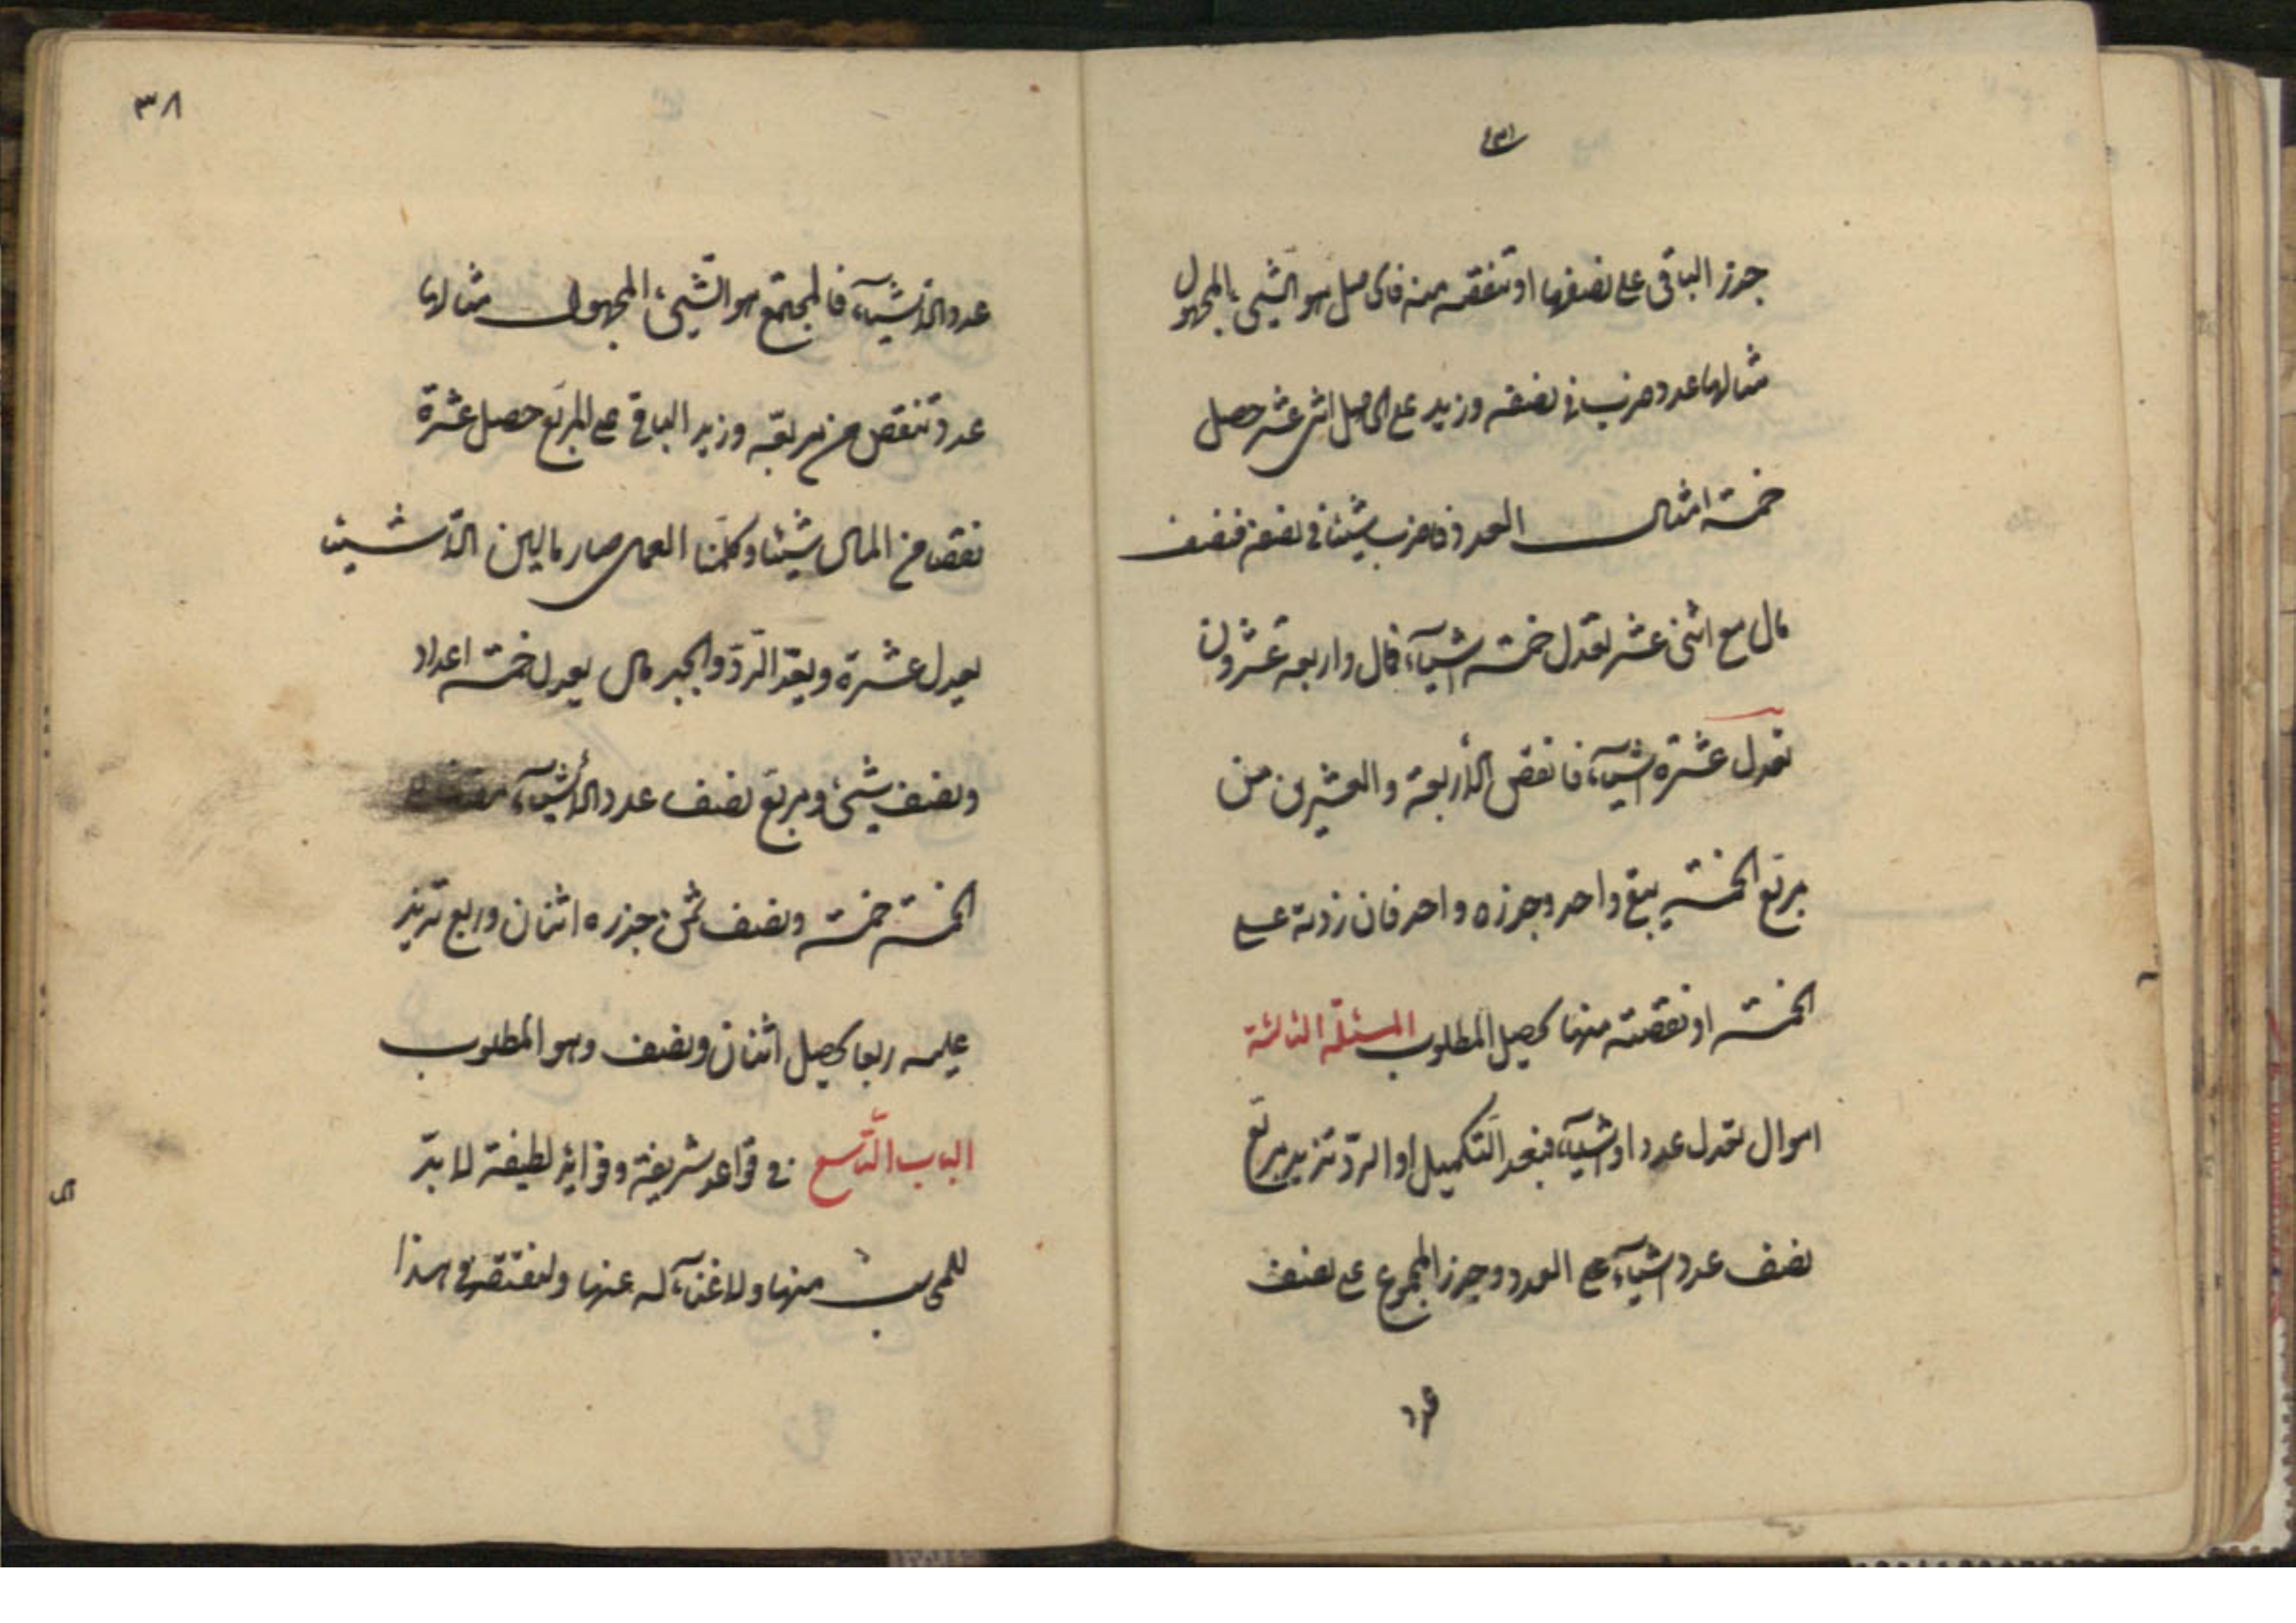 جذر الباقى على نصفها او تنقصه منه فالحاصل هو الشيء المجهول
مثالها عدد ضرب فى نصفه وزيد على الحاصل اثنى عشر حصل
خمسة امثال العدد فاضرب شيئا فى نصفه فنصف
مال مع اثنى عشر يعدل خمسة اشياء فمال واربعة عشرون
تعدل عشرة اشياء فانقص الأربعة والعشرين من
مربع الخمسة يبقى واحد وجذره واحد فان زدته على
الخمسة او نقصته منها يحصل المطلوب المسئلة الثالثة
اموال تعدل عددا واشياء فبعد التكميل او الرد تزيد مربع
نصف عدد اشياء على العدد وجذر المجموع على نصف
عدد
٣٨
عدد الأشياء فالمجتمع هو الشيء المجهول مثالها
عدد تنقص من مربعه وزيد الباقى على المربع حصل عشرة
نقصنا من المال شيئا وكملنا العمل صار مالين الا شيئا
يعدل عشرة وبعد الرد والجبر مال يعدل خمسة اعداد
ونصف شيء ومربع نصف عدد الأشياء
الخمسة خمسة ونصف ثمن جذره اثنان وربع تزيد
عليه ربعا يحصل اثنان ونصف وهو المطلوب
الباب التاسع فى قواعد شريفة وفوائد لطيفة لا بد
للمحاسب منها ولا غناء له عنها ولنقتصر فى هذا